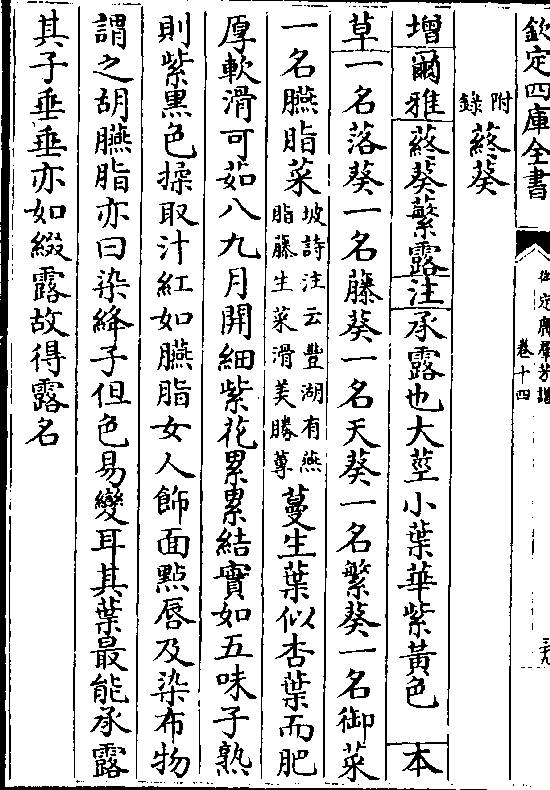 欽定四庫全書
御定廣羣芳譜
卷十四
二十九
附錄蔠葵
增爾雅蔠葵蘩露注承露也大莖小葉華紫黃色 本
草一名落葵一名藤葵一名天葵一名繁葵一名御菜
一名臙脂菜坡詩注云豐湖有燕脂藤生菜滑美勝蓴蔓生葉似杏葉而肥
厚軟滑可茹八九月開細紫花累累結實如五味子熟
則紫黑色揉取汁紅如臙脂女人飾面點唇及染布物
謂之胡臙脂亦曰染絳子但色易變耳其葉最能承露
其子垂垂亦如綴露故得露名